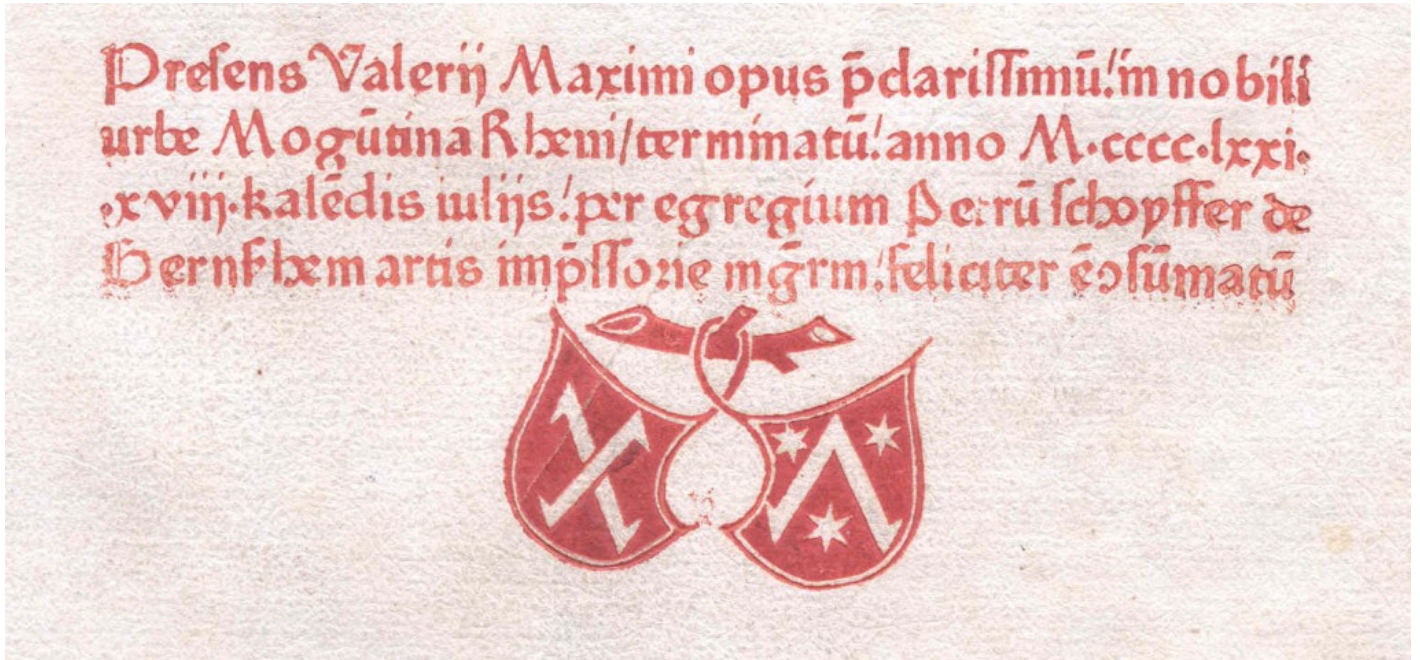 Presens Valerij Maximi opus p̄clarissimū/in nobili
urbe Mogūtina Rheni/terminatū/anno M·cccc·lxxi·
·xviij·kalēdis iulijs/per egregium Petrū schoyffer de
Gernsshem artis imp̄ssorie mgr̄m/feliciter ē ↄsūmatū